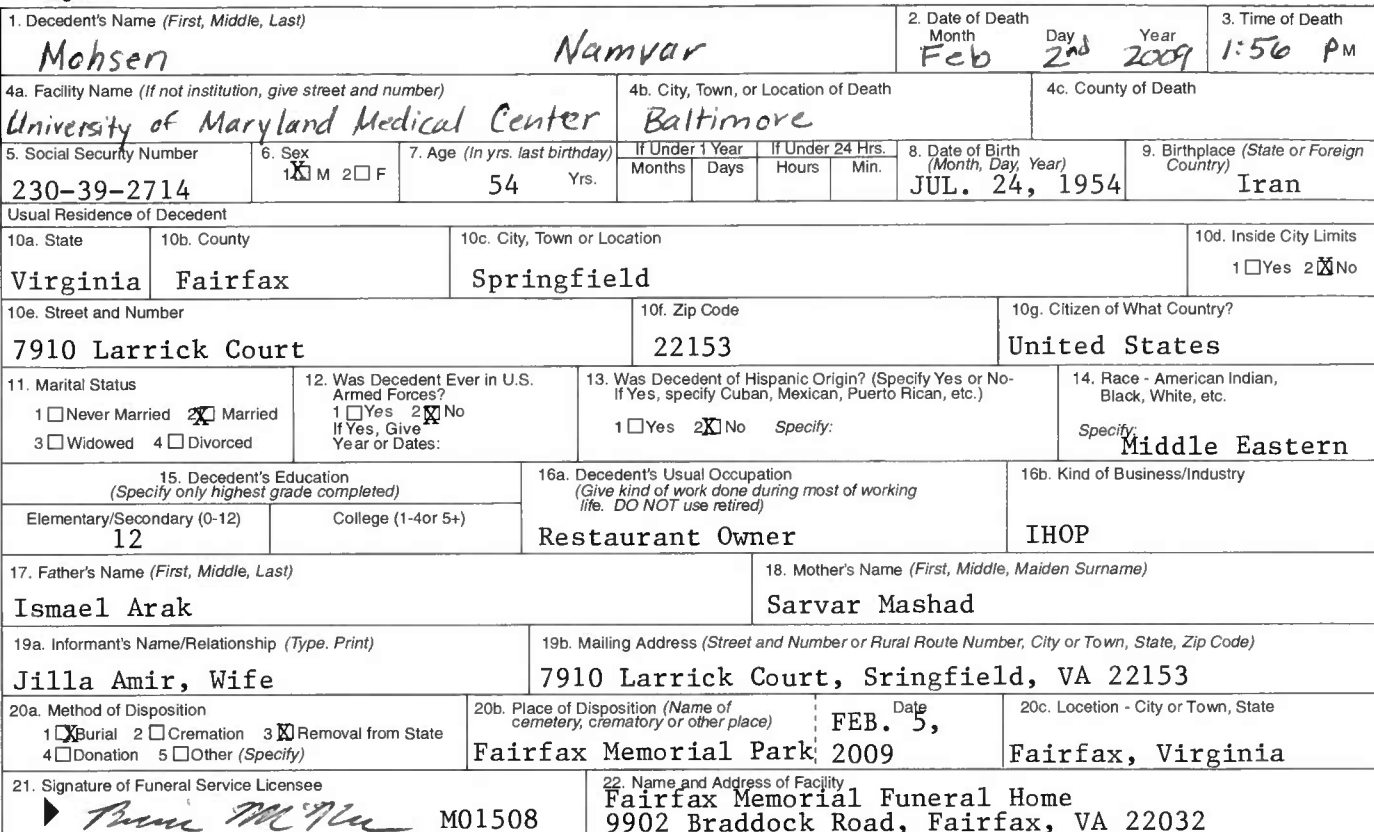 1. Decedent's Name (First, Middle, Last)
Mohsen Namvar
2. Date of Death
Month Day Year
Feb 2nd 2009
3. Time of Death
1:56 PM
4a. Facility Name (If not institution, give street and number)
University of Maryland Medical Center
4b. City, Town, or Location of Death
Baltimore
4c. County of Death
5. Social Security Number
230-39-2714
6. Sex
1 X M 2 □ F
7. Age (In yrs. last birthday)
54 Yrs.
If Under 1 Year
Months Days
If Under 24 Hrs.
Hours Min.
8. Date of Birth
(Month, Day, Year)
JUL. 24, 1954
9. Birthplace (State or Foreign
Country)
Iran
Usual Residence of Decedent
10a. State
Virginia
10b. County
Fairfax
10c. City, Town or Location
Springfield
10d. Inside City Limits
1 □ Yes 2 X No
10e. Street and Number
7910 Larrick Court
10f. Zip Code
22153
10g. Citizen of What Country?
United States
11. Marital Status
1 □ Never Married 2 X Married
3 □ Widowed 4 □ Divorced
12. Was Decedent Ever in U.S.
Armed Forces?
1 □ Yes 2 X No
If Yes, Give
Year or Dates:
13. Was Decedent of Hispanic Origin? (Specify Yes or No-
If Yes, specify Cuban, Mexican, Puerto Rican, etc.)
1 □ Yes 2 X No Specify:
14. Race - American Indian,
Black, White, etc.
Specify:
Middle Eastern
15. Decedent's Education
(Specify only highest grade completed)
Elementary/Secondary (0-12)
12
College (1-4or 5+)
16a. Decedent's Usual Occupation
(Give kind of work done during most of working
life. DO NOT use retired)
Restaurant Owner
16b. Kind of Business/Industry
IHOP
17. Father's Name (First, Middle, Last)
Ismael Arak
18. Mother's Name (First, Middle, Maiden Surname)
Sarvar Mashad
19a. Informant's Name/Relationship (Type. Print)
Jilla Amir, Wife
19b. Mailing Address (Street and Number or Rural Route Number, City or Town, State, Zip Code)
7910 Larrick Court, Sringfield, VA 22153
20a. Method of Disposition
1 X Burial 2 □ Cremation 3 X Removal from State
4 □ Donation 5 □ Other (Specify)
20b. Place of Disposition (Name of
cemetery, crematory or other place)
Fairfax Memorial Park
Date
FEB. 5,
2009
20c. Locetion - City or Town, State
Fairfax, Virginia
21. Signature of Funeral Service Licensee
M01508
22. Name and Address of Facility
Fairfax Memorial Funeral Home
9902 Braddock Road, Fairfax, VA 22032